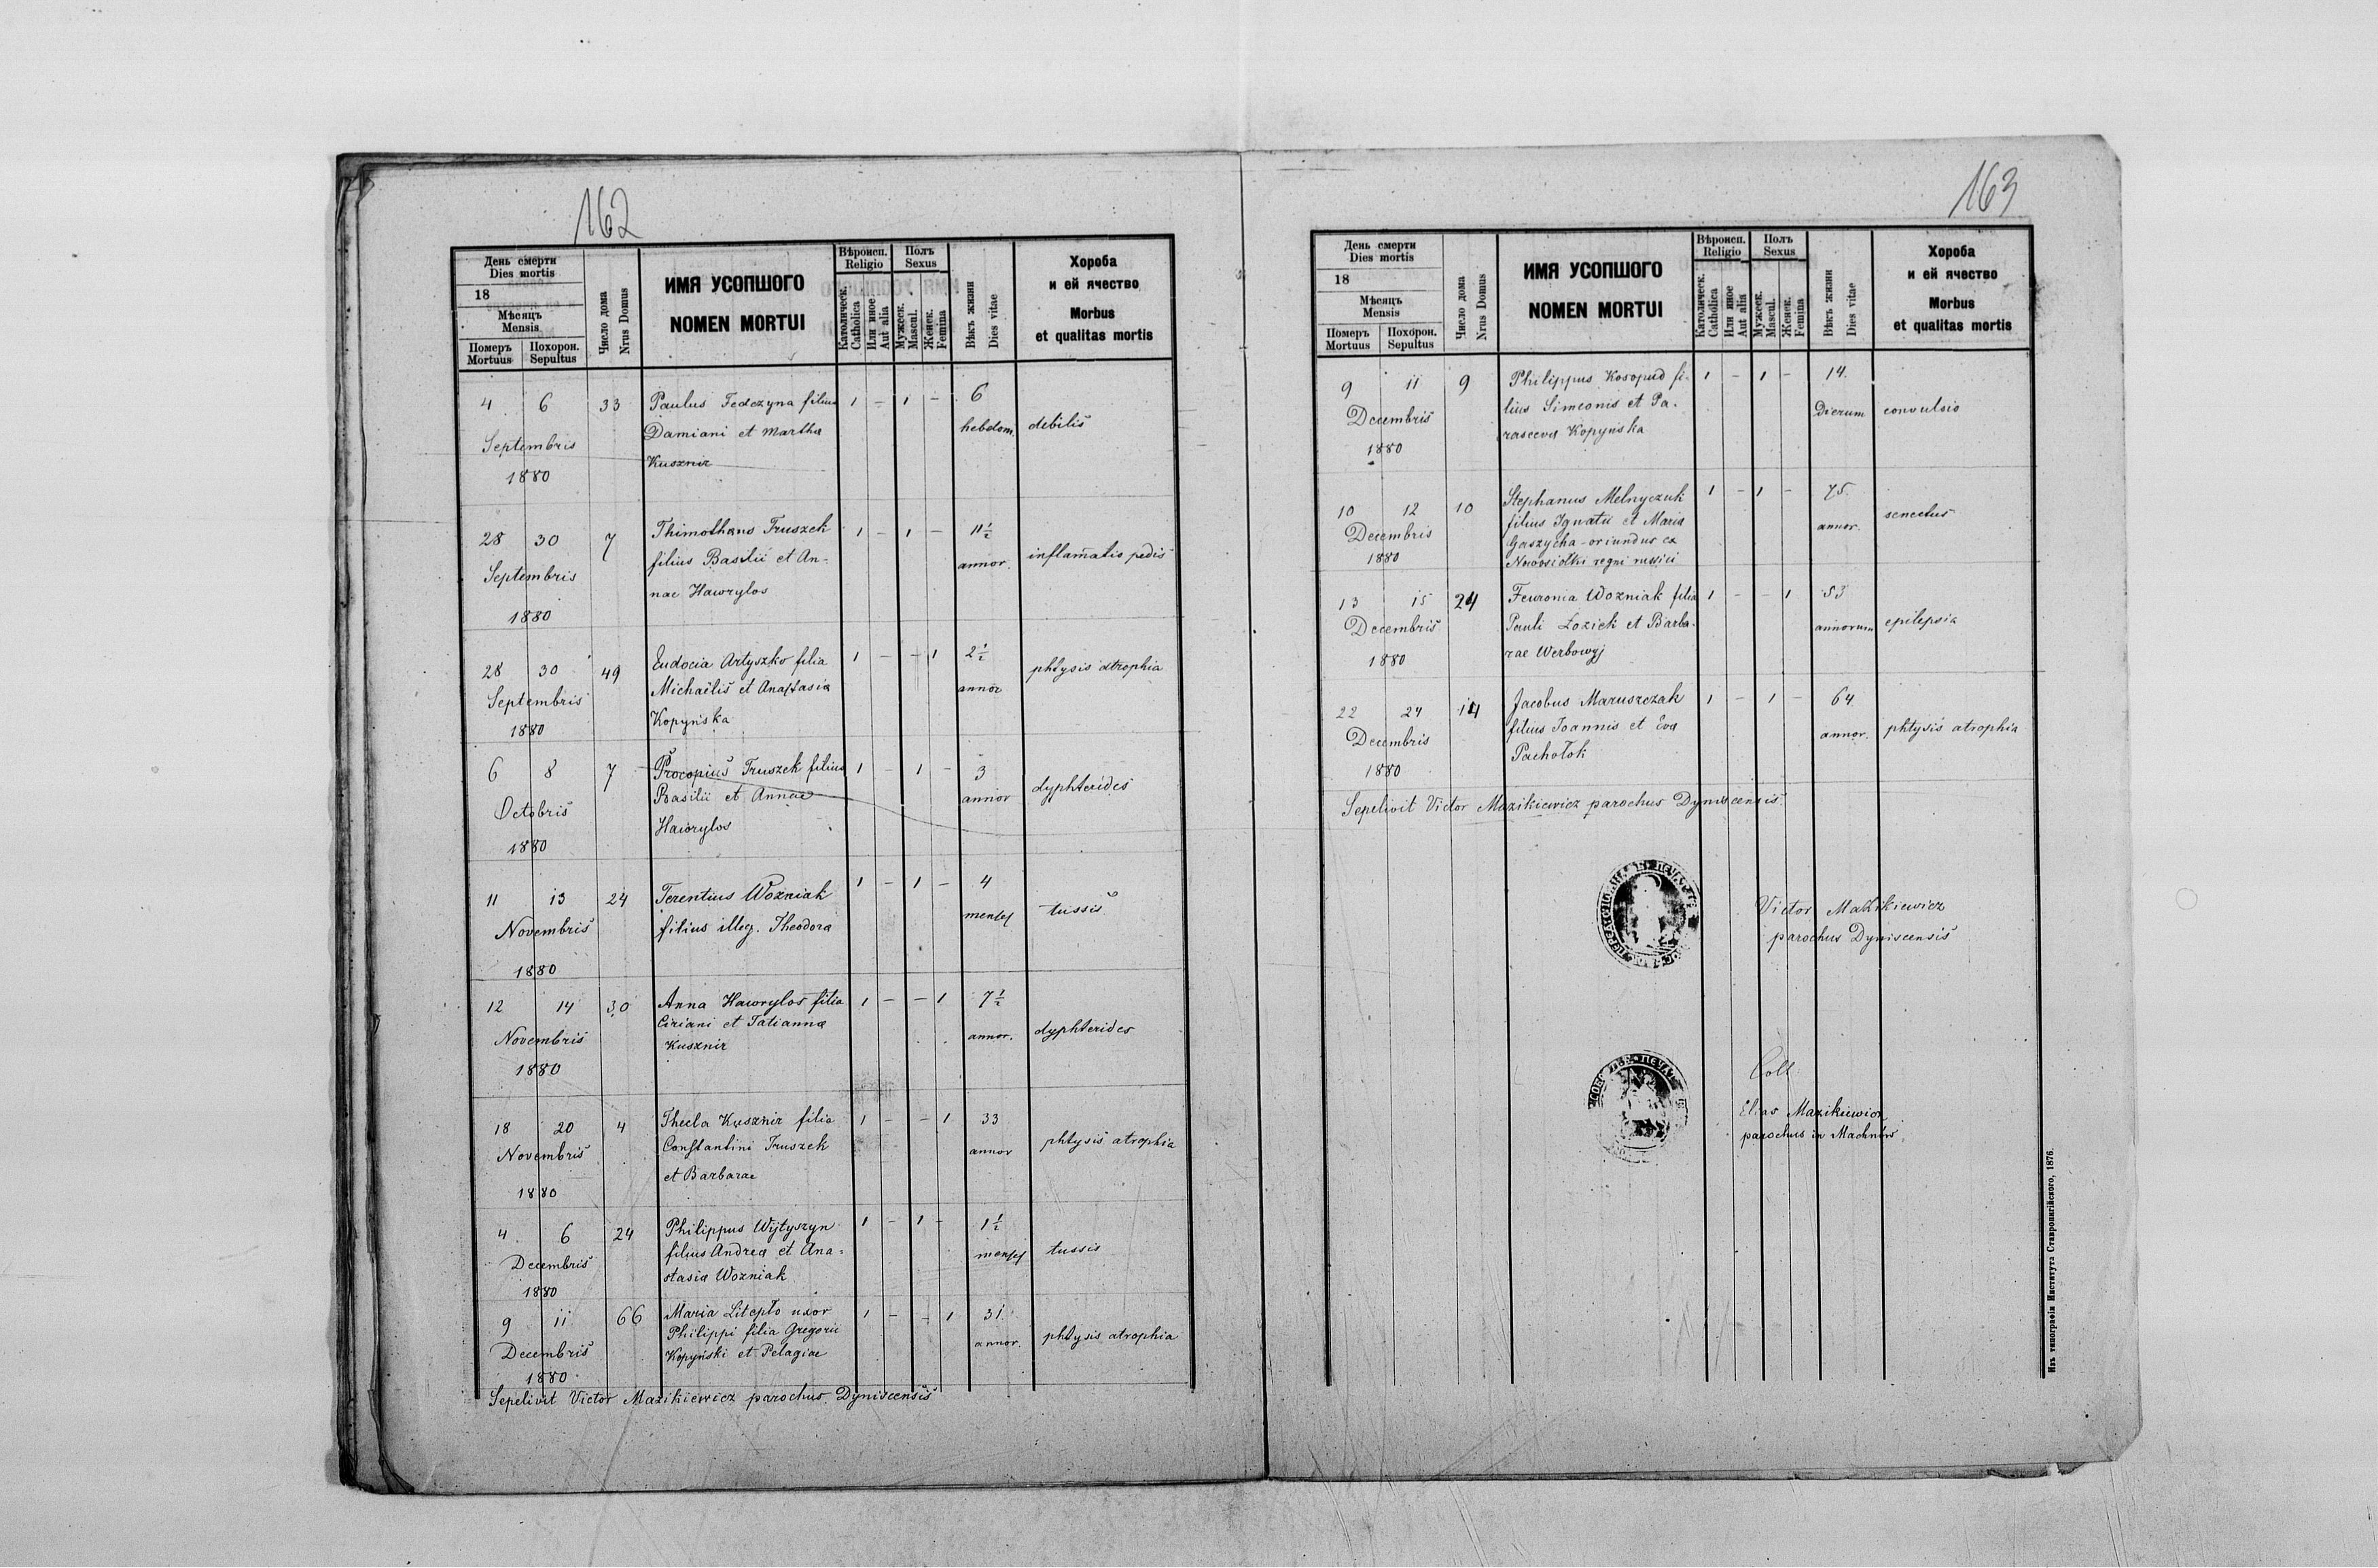 162
День смерти
Dies mortis
18
Мѣсяцъ
Mensis
Померъ
Mortuus
Похорон.
Sepultus
Число дома
Nrus Domus
ИМЯ УСОПШОГО
NOMEN MORTUI
Вѣроисп.
Religio
Католическ.
Catholica
Или иное
Aut alia
Полъ
Sexus
Мужеск.
Mascul.
Женск.
Femina
Вѣкъ жизни
Dies vitae
Хороба
и ей ячество
Morbus
et qualitas mortis
4 6 33 Paulus Fedczyna filius 1 - 1 - 6
Damiani et Martha hebdom. debilis
Septembris
Kusznir
1880
28 30 7 Thimotheus Truszek 1 - 1 - 11 1/2
filius Basilii et An- annor. inflam̄atio pedis
Septembris
nae Hawrylos
1880
28 30 49 Eudocia Artyszko filia 1 - - 1 2 1/2
Michaëlis et Anastasia annor phtysis atrophia
Septembris
Kopyńska
1880
6 8 7 Procopius Truszek filius 1 - 1 - 3
Basilii et Annae annor dyphterides
Octobris
Hawrylos
1880
11 13 24 Terentius Wozniak 1 - 1 - 4
filius illeg. Theodora menses tussis
Novembris
1880
12 14 30 Anna Hawrylos filia 1 - - 1 7 1/2
Ciriani et Tatianna annor. dyphterides
Novembris
Kusznir
1880
18 20 4 Thecla Kusznir filia 1 - - 1 33
Constantini Truszek annor phtysis atrophia
Novembris
et Barbarae
1880
4 6 24 Philippus Wijtyszyn 1 - 1 - 1 1/2
filius Andrea et Ana= menses tussis
Decembris
stasia Wozniak
1880
9 11 66 Maria Litepło uxor 1 - - 1 31
Philippi filia Gregorii annor. phtysis atrophia
Decembris
Kopyński et Pelagiae
1880
Sepelivit Victor Mazikiewicz parochus Dyniscensis
163
День смерти
Dies mortis
18
Мѣсяцъ
Mensis
Померъ
Mortuus
Похорон.
Sepultus
Число дома
Nrus Domus
ИМЯ УСОПШОГО
NOMEN MORTUI
Вѣроисп.
Religio
Католическ.
Catholica
Или иное
Aut alia
Полъ
Sexus
Мужеск.
Mascul.
Женск.
Femina
Вѣкъ жизни
Dies vitae
Хороба
и ей ячество
Morbus
et qualitas mortis
9 11 9 Philippus Kosopud fi- 1 - 1 - 14.
lius Simeonis et Pa- Dierum convulsio
Decembris
rasceva Kopyńska
1880
10 12 10 Stephanus Melnyczuk 1 - 1 - 75.
filius Ignatii et Maria annor. senectus
Decembris
Gaszycha - oriundus ex
1880
Nowosiołki regni russici
13 15 24 Feuronia Wozniak filia 1 - - 1 53
Pauli Łozick et Barba- annorum epilepsia
Decembris
rae Werbowyj
1880
22 24 14 Jacobus Maruszczak 1 - 1 - 64
filius Joannis et Eva annor. phtysis atrophia
Decembris
Pachołok
1880
Sepelivit Victor Mazikiewicz parochus Dyniscensis.
Victor Mazikiewicz
parochus Dyniscensis
Coll
Elias Mazikiewicz
parochus in Machnów
Изъ типографіи Института Ставропигійского, 1876.